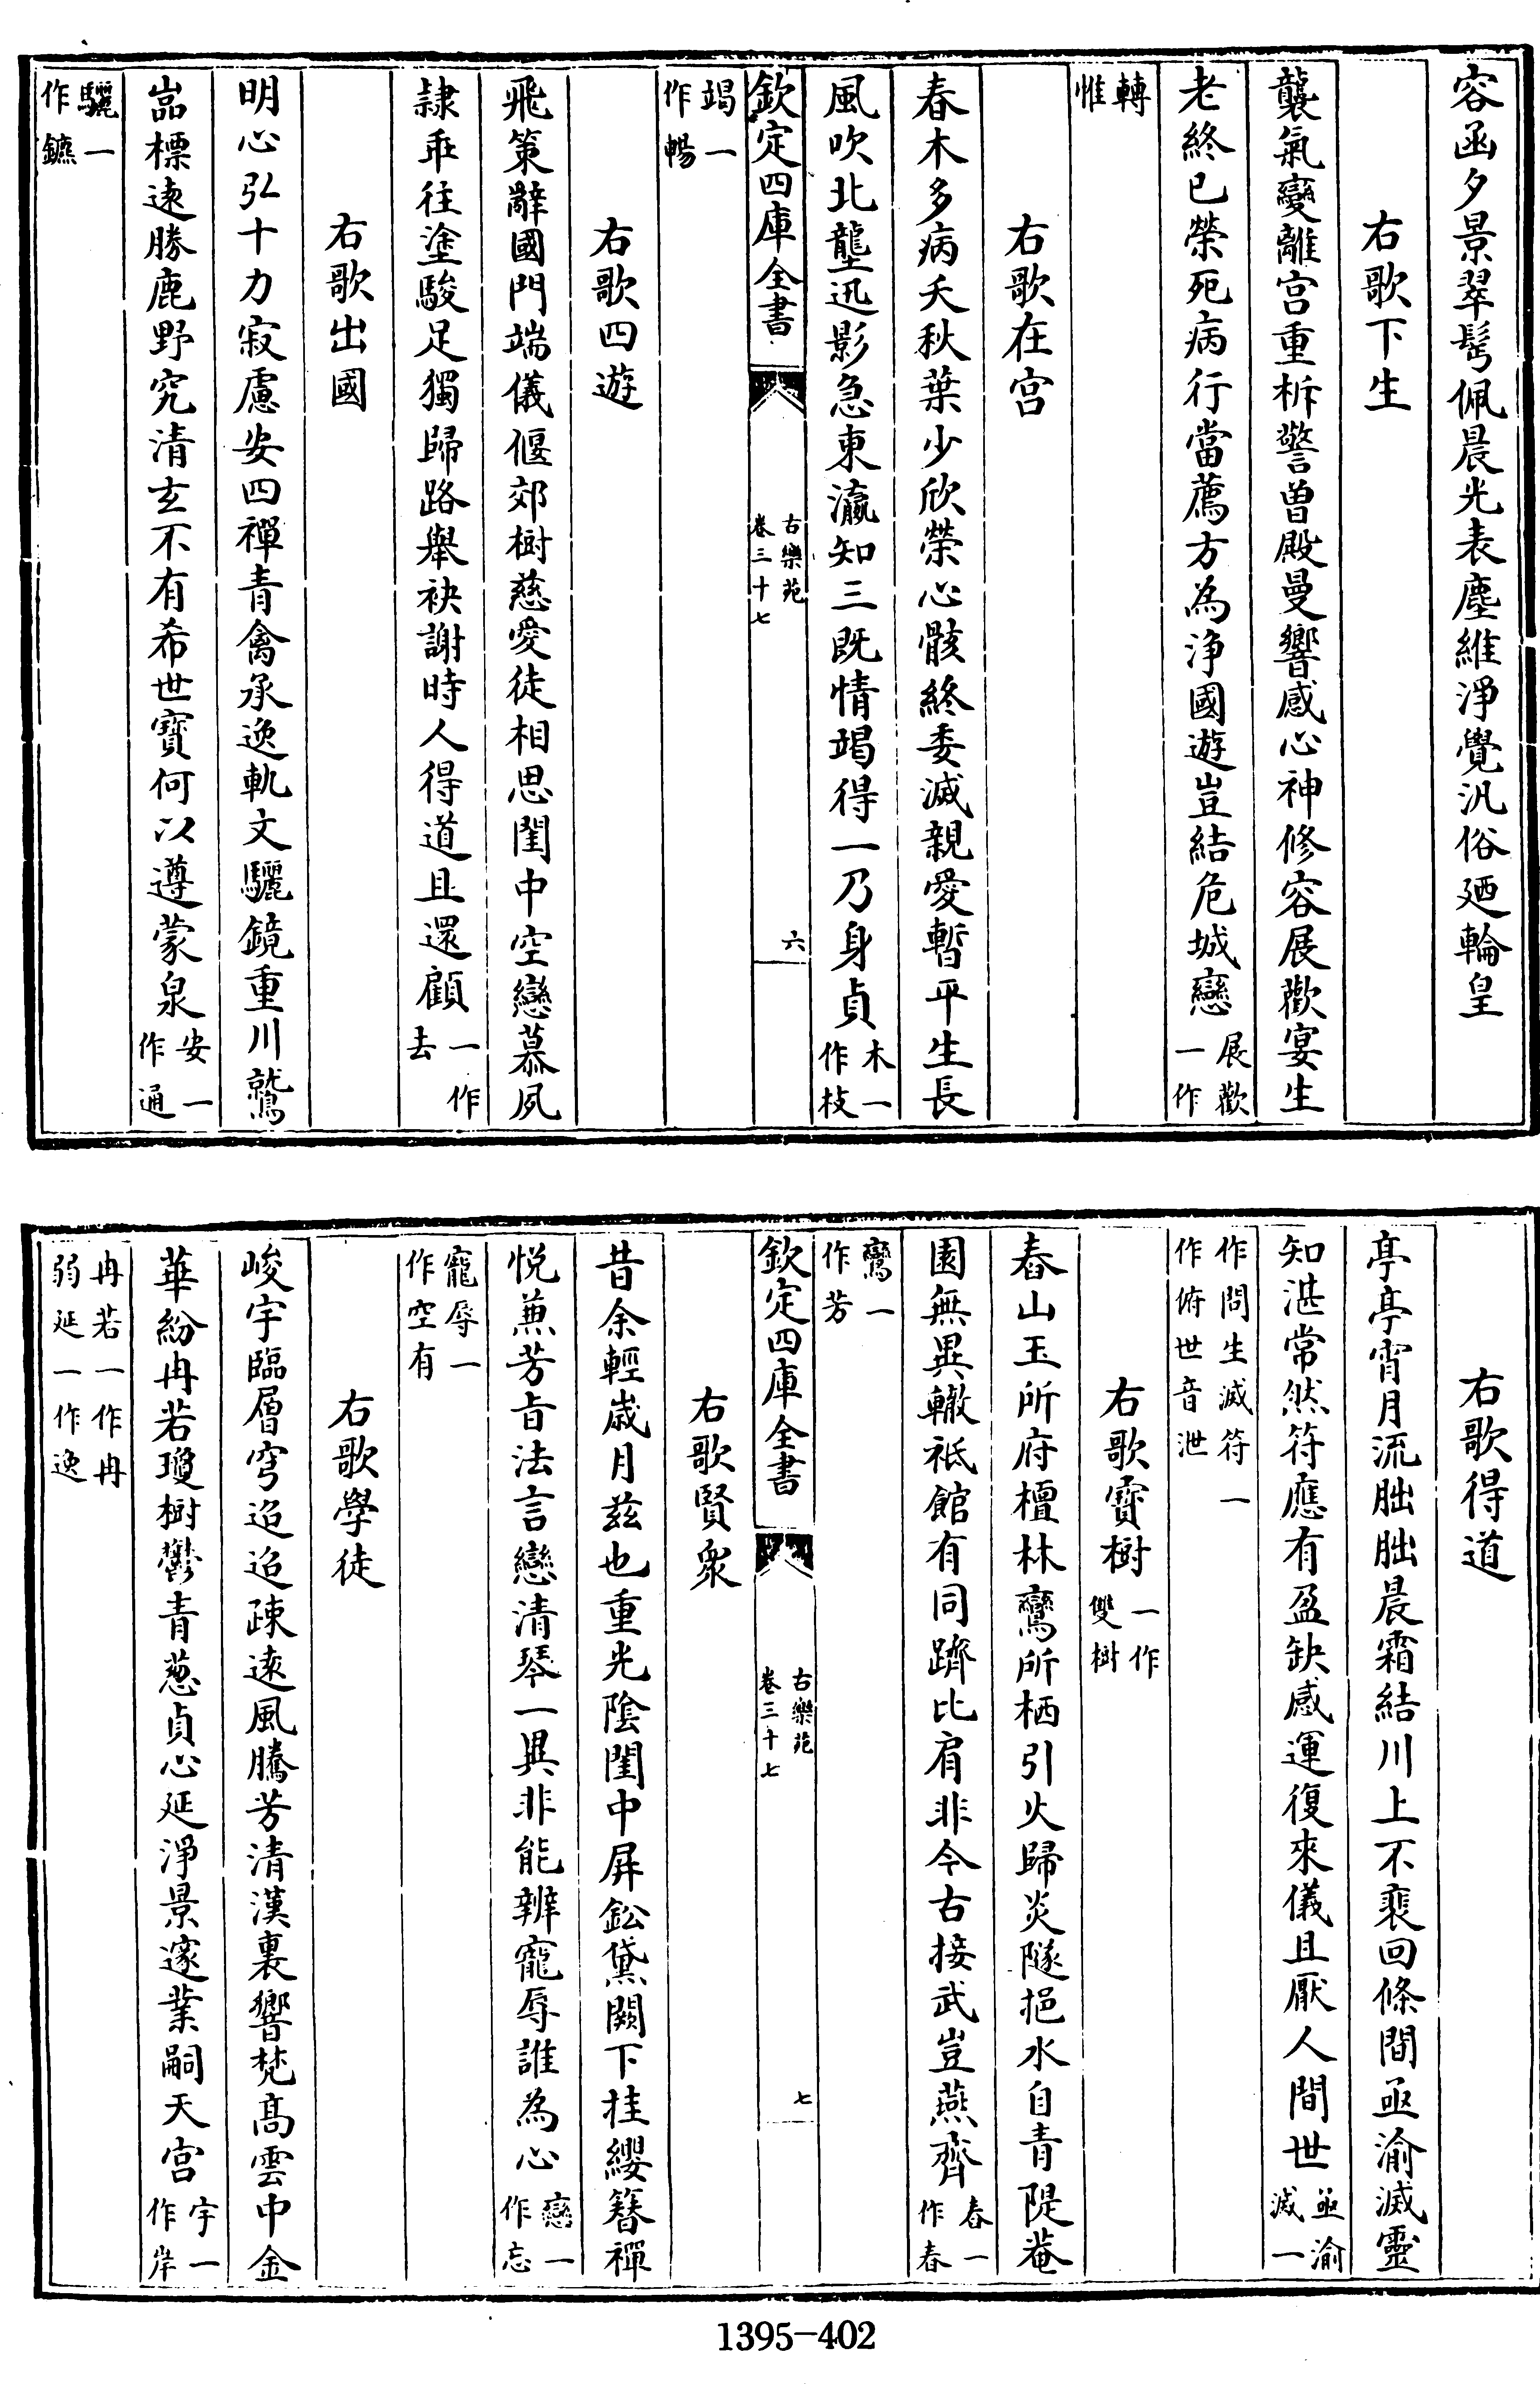 容函夕景翠髩佩晨光表塵維淨覺汎俗廼輪皇
右歌下生
襲氣變離宮重柝警曽殿曼響感心神修容展歡宴生
老終已榮死病行當薦方為浄國遊豈結危城戀展歡一作
轉惟
右歌在宮
春木多病夭秋葉少欣榮心骸終委滅親愛暫平生長
風吹北壟迅影急東瀛知三既情竭得一乃身貞木一作枝
竭一作暢
欽定四庫全書
古樂苑卷三十七
六
右歌四遊
飛策辭國門端儀偃郊樹慈愛徒相思閨中空戀慕夙
隷乖往塗駿足獨歸路舉袂謝時人得道且還顧一作去
右歌出國
明心弘十力寂慮安四禪青禽承逸軌文驪鏡重川鷲
嵓標逺勝鹿野究清玄不有希世寶何以遵蒙泉安一作通
驪一作鑣
右歌得道
亭亭宵月流朏朏晨霜結川上不裵回條間亟渝滅靈
知湛常然符應有盈缺感運復來儀且厭人間世亟渝滅一
作問生滅符一作俯世音泄
右歌寳樹一作雙樹
舂山玉所府檀林鸞所栖引火歸炎隧挹水自青隄菴
園無異轍祇館有同躋比肩非今古接武豈燕齊舂一作春
鸞一作芳
欽定四庫全書
古樂苑卷三十七
七
右歌賢衆
昔余輕歳月茲也重光陰閨中屏鈆黛闕下挂纓簪禪
悦兼芳旨法言戀清琴一異非能辨寵辱誰為心戀一作忘
寵辱一作空有
右歌學徒
峻宇臨層穹迢迢疎逺風騰芳清漢裏響梵髙雲中金
華紛冉若瓊樹鬱青葱貞心延淨景邃業嗣天宮宇一作岸
冉若一作冉弱延一作逸
1395-402